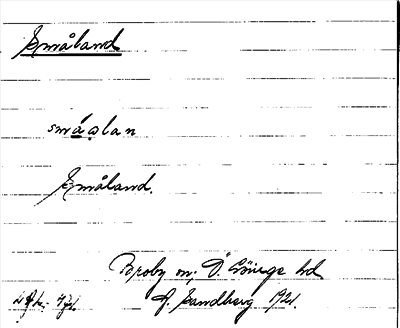 Småland
småəlan
Småland.
Broby sn, Ö. Göinge hd.
G. Sandberg 1921.